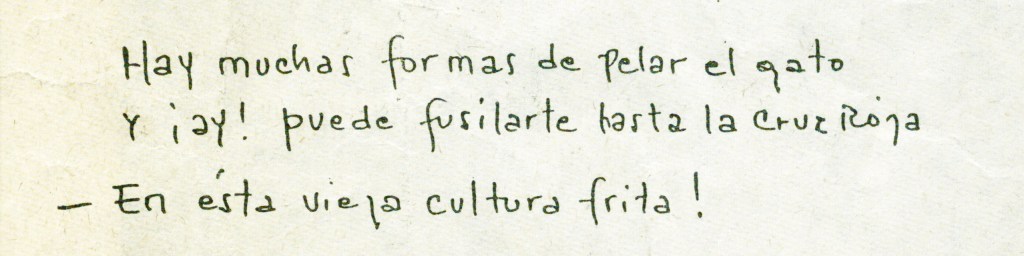 Hay muchas formas de pelar el gato
Y ¡ay! puede fusilarte hasta la Cruz Roja
— En ésta vieja cultura frita!